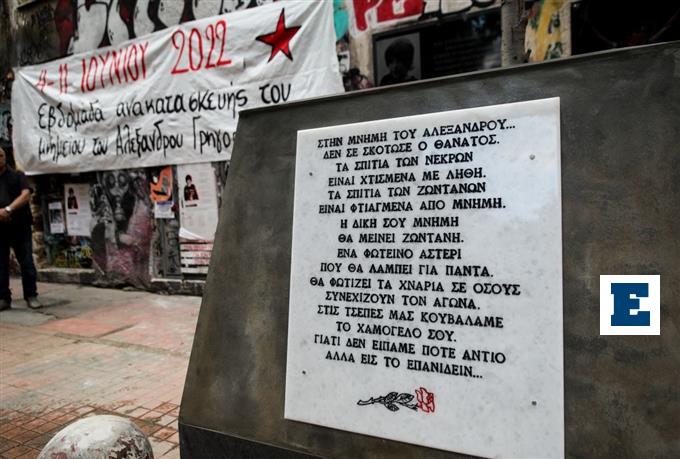 4-11 ΙΟΥΝΙΟΥ 2022
Εβδομάδα ανακατασκευής του
μνημείου του Αλέξανδρου Γρηγο
ΣΤΗΝ ΜΝΗΜΗ ΤΟΥ ΑΛΕΞΑΝΔΡΟΥ...
ΔΕΝ ΣΕ ΣΚΟΤΩΣΕ Ο ΘΑΝΑΤΟΣ.
ΤΑ ΣΠΙΤΙΑ ΤΩΝ ΝΕΚΡΩΝ
ΕΙΝΑΙ ΧΤΙΣΜΕΝΑ ΜΕ ΛΗΘΗ.
ΤΑ ΣΠΙΤΙΑ ΤΩΝ ΖΩΝΤΑΝΩΝ
ΕΙΝΑΙ ΦΤΙΑΓΜΕΝΑ ΑΠΟ ΜΝΗΜΗ.
Η ΔΙΚΗ ΣΟΥ ΜΝΗΜΗ
ΘΑ ΜΕΙΝΕΙ ΖΩΝΤΑΝΗ.
ΕΝΑ ΦΩΤΕΙΝΟ ΑΣΤΕΡΙ
ΠΟΥ ΘΑ ΛΑΜΠΕΙ ΓΙΑ ΠΑΝΤΑ.
ΘΑ ΦΩΤΙΖΕΙ ΤΑ ΧΝΑΡΙΑ ΣΕ ΟΣΟΥΣ
ΣΥΝΕΧΙΖΟΥΝ ΤΟΝ ΑΓΩΝΑ.
ΣΤΙΣ ΤΣΕΠΕΣ ΜΑΣ ΚΟΥΒΑΛΑΜΕ
ΤΟ ΧΑΜΟΓΕΛΟ ΣΟΥ.
ΓΙΑΤΙ ΔΕΝ ΕΙΠΑΜΕ ΠΟΤΕ ΑΝΤΙΟ
ΑΛΛΑ ΕΙΣ ΤΟ ΕΠΑΝΙΔΕΙΝ...
E